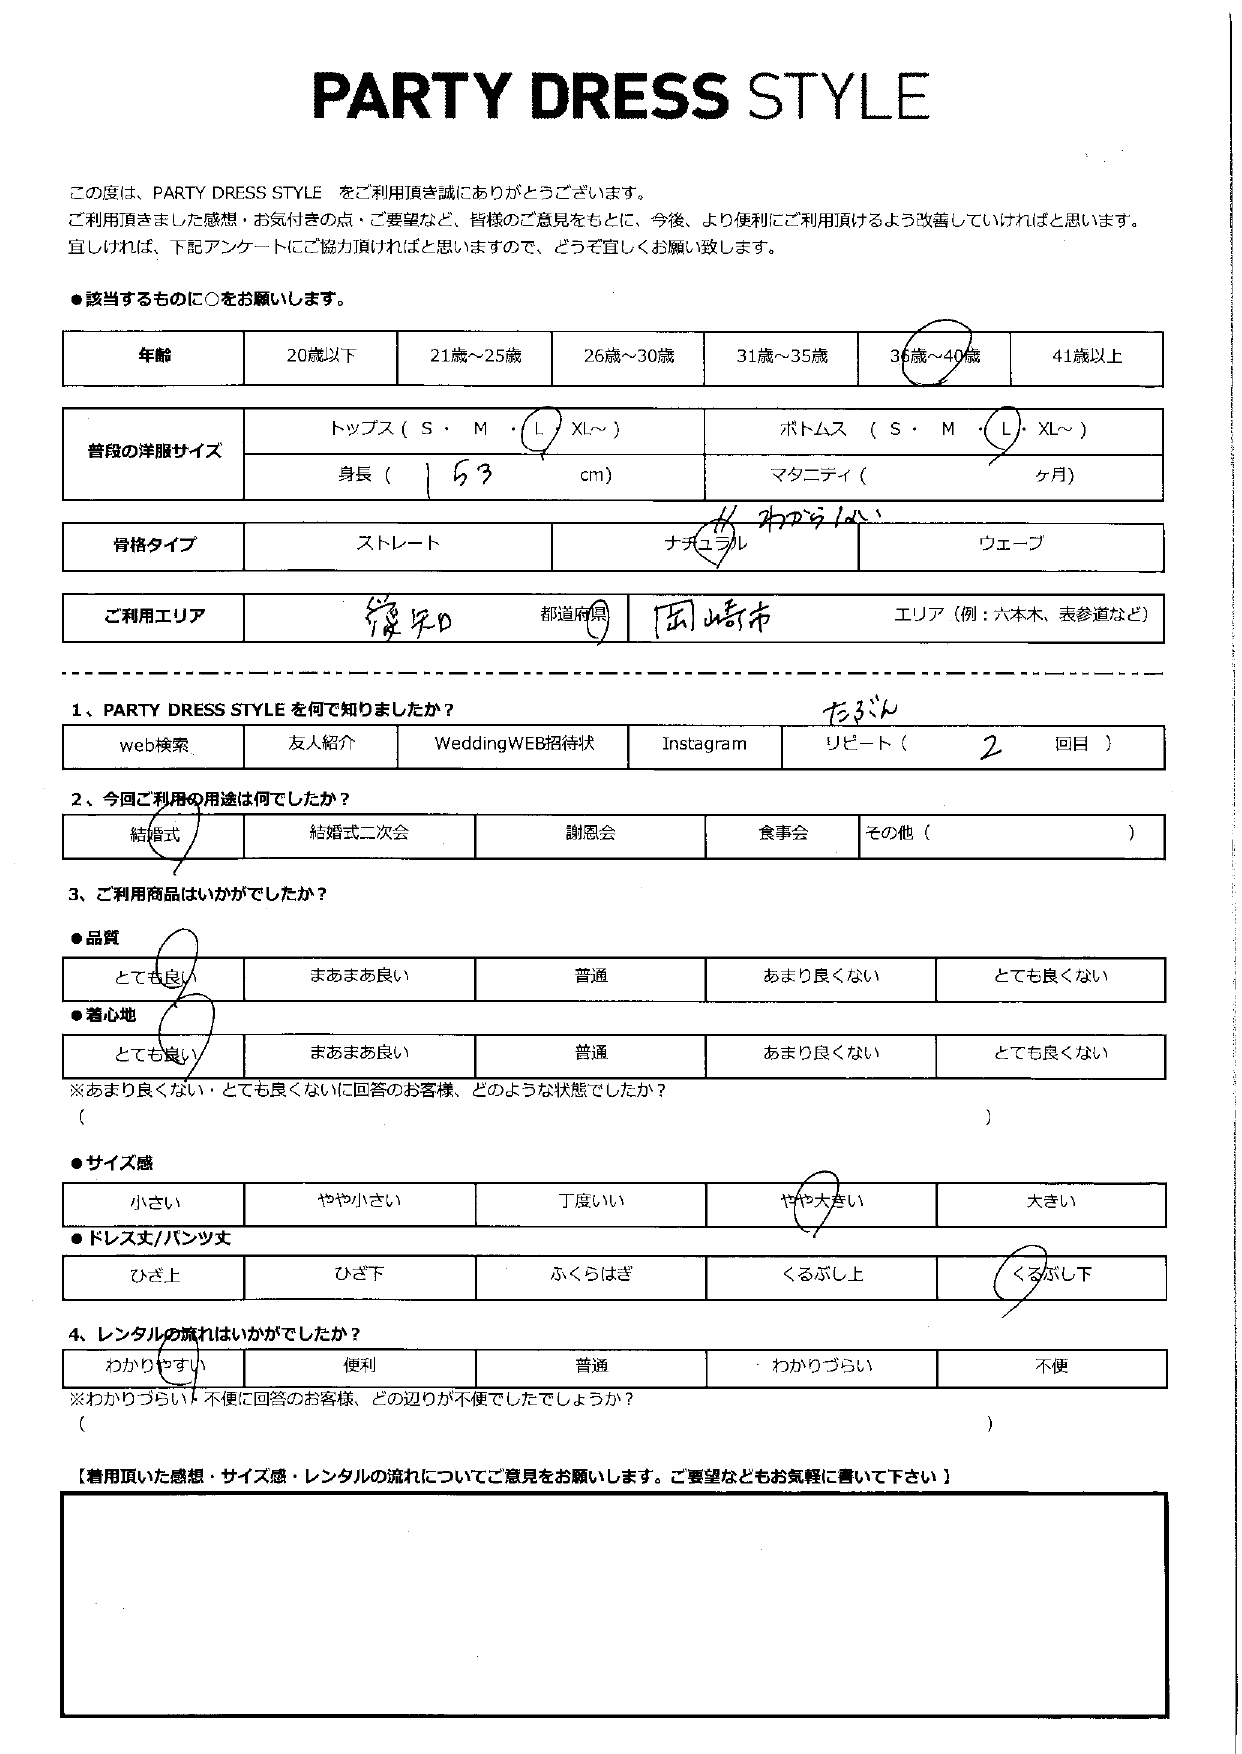 PARTY DRESS STYLE
この度は、PARTY DRESS STYLE をご利用頂き誠にありがとうございます。
ご利用頂きました感想・お気付きの点・ご要望など、皆様のご意見をもとに、今後、より便利にご利用頂けるよう改善していければと思います。
宜しければ、下記アンケートにご協力頂ければと思いますので、どうぞ宜しくお願い致します。
●該当するものに○をお願いします。
年齢 20歳以下 21歳～25歳 26歳～30歳 31歳～35歳 36歳～40歳 41歳以上
普段の洋服サイズ トップス ( S ・ M ・ L ・ XL～ ) ボトムス ( S ・ M ・ L ・ XL～ )
身長 ( 153 cm) マタニティ ( ヶ月)
わからない
骨格タイプ ストレート ナチュラル ウェーブ
ご利用エリア 愛知 都道府県 岡崎市 エリア（例：六本木、表参道など）
1、PARTY DRESS STYLE を何で知りましたか？
たぶん
web検索 友人紹介 WeddingWEB招待状 Instagram リピート ( 2 回目 )
2、今回ご利用の用途は何でしたか？
結婚式 結婚式二次会 謝恩会 食事会 その他 ( )
3、ご利用商品はいかがでしたか？
●品質
とても良い まあまあ良い 普通 あまり良くない とても良くない
●着心地
とても良い まあまあ良い 普通 あまり良くない とても良くない
※あまり良くない・とても良くないに回答のお客様、どのような状態でしたか？
( )
●サイズ感
小さい やや小さい 丁度いい やや大きい 大きい
●ドレス丈/パンツ丈
ひざ上 ひざ下 ふくらはぎ くるぶし上 くるぶし下
4、レンタルの流れはいかがでしたか？
わかりやすい 便利 普通 わかりづらい 不便
※わかりづらい・不便に回答のお客様、どの辺りが不便でしたでしょうか？
( )
【着用頂いた感想・サイズ感・レンタルの流れについてご意見をお願いします。ご要望などもお気軽に書いて下さい】